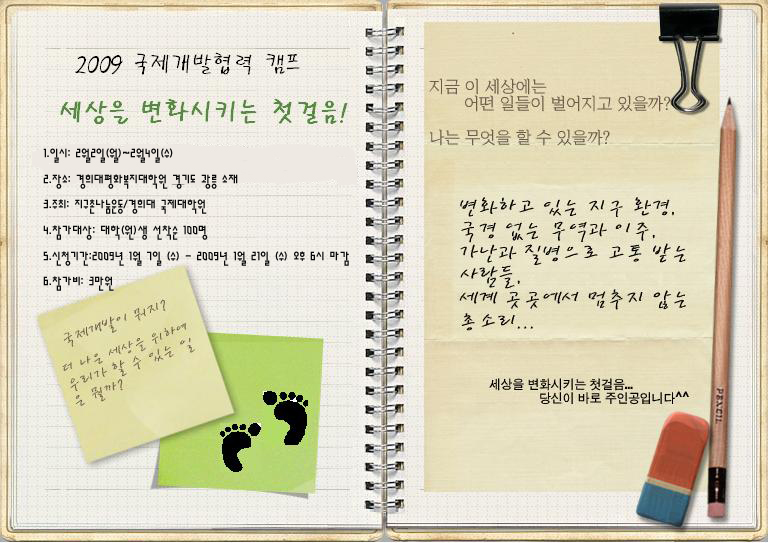 2009 국제개발협력 캠프
세상을 변화시키는 첫걸음!
1.일시: 2월2일(월)~2월4일(수)
2.장소: 경희대평화복지대학원 경기도 광릉 소재
3.주최: 지구촌나눔운동/경희대 국제대학원
4.참가대상: 대학(원)생 선착순 100명
5.신청기간:2009년 1월 7일 (수) - 2009년 1월 21일 (수) 오후 6시 마감
6.참가비: 3만원
국제개발이 뭐지?
더 나은 세상을 위하여
우리가 할 수 있는 일
은 뭘까?
지금 이 세상에는
어떤 일들이 벌어지고 있을까?
나는 무엇을 할 수 있을까?
변화하고 있는 지구 환경,
국경 없는 무역과 이주,
가난과 질병으로 고통 받는
사람들,
세계 곳곳에서 멈추지 않는
총소리...
세상을 변화시키는 첫걸음...
당신이 바로 주인공입니다^^
PENCIL